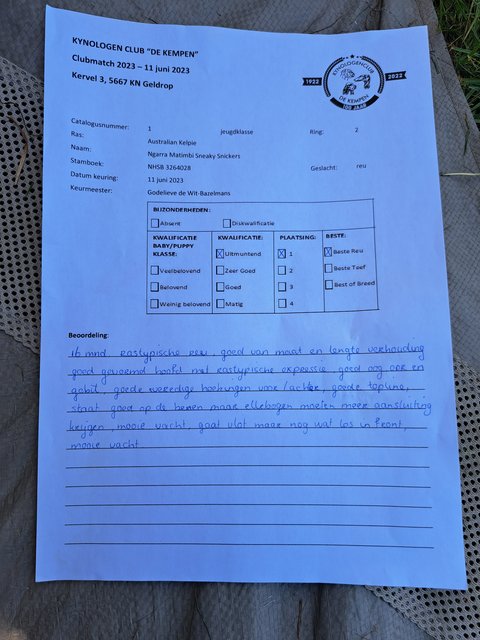 KYNOLOGEN CLUB "DE KEMPEN"
Clubmatch 2023 – 11 juni 2023
Kervel 3, 5667 KN Geldrop
KYNOLOGENCLUB
1922 2022
DE KEMPEN
100 JAAR
Catalogusnummer: 1 jeugdklasse Ring: 2
Ras: Australian Kelpie
Naam: Ngarra Matimbi Sneaky Snickers
Stamboek: NHSB 3264028 Geslacht: reu
Datum keuring: 11 juni 2023
Keurmeester: Godelieve de Wit-Bazelmans
BIJZONDERHEDEN:
Absent Diskwalificatie
KWALIFICATIE BABY/PUPPY KLASSE:
Veelbelovend
Belovend
Weinig belovend
KWALIFICATIE:
X Uitmuntend
Zeer Goed
Goed
Matig
PLAATSING:
X 1
2
3
4
BESTE:
X Beste Reu
Beste Teef
Best of Breed
Beoordeling:
16 mnd, rastypische reu, goed van maat en lengte verhouding
goed gevormd hoofd met rastypische expressie, goed oog oor en
gebit, goede weredige hoekingen voor/achter, goede topline,
staat goed op de benen maar ellebogen moeten meer aansluiting
krijgen, mooie vacht, gaat vlot maar nog wat los in front,
mooie vacht